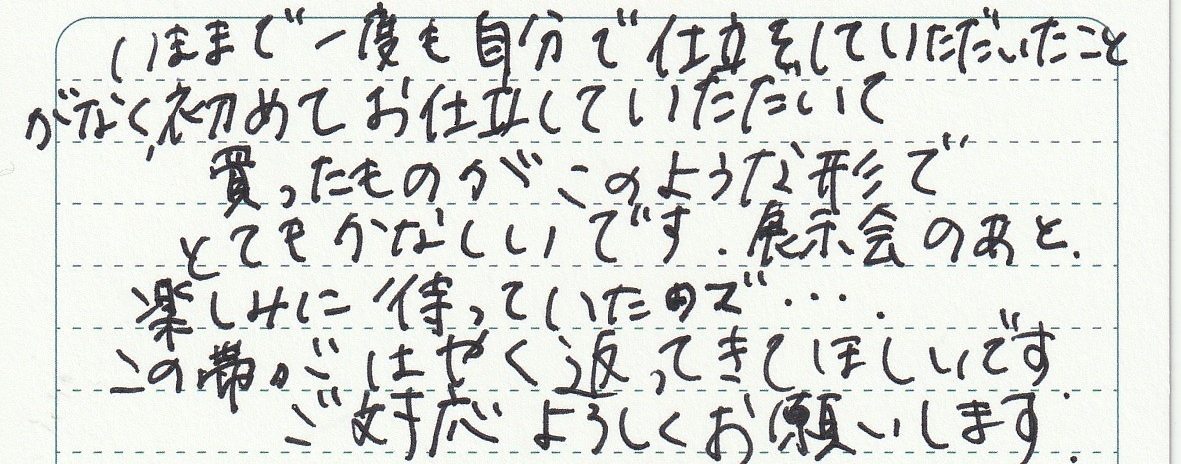 いままで一度も自分で仕立をしていただいたこと
がなく、初めてお仕立していただいて
買ったものがこのような形で
とてもかなしいです.展示会のあと.
楽しみに待っていたので・・・.
この帯がはやく返ってきてほしいです
ご対応よろしくお願いします.